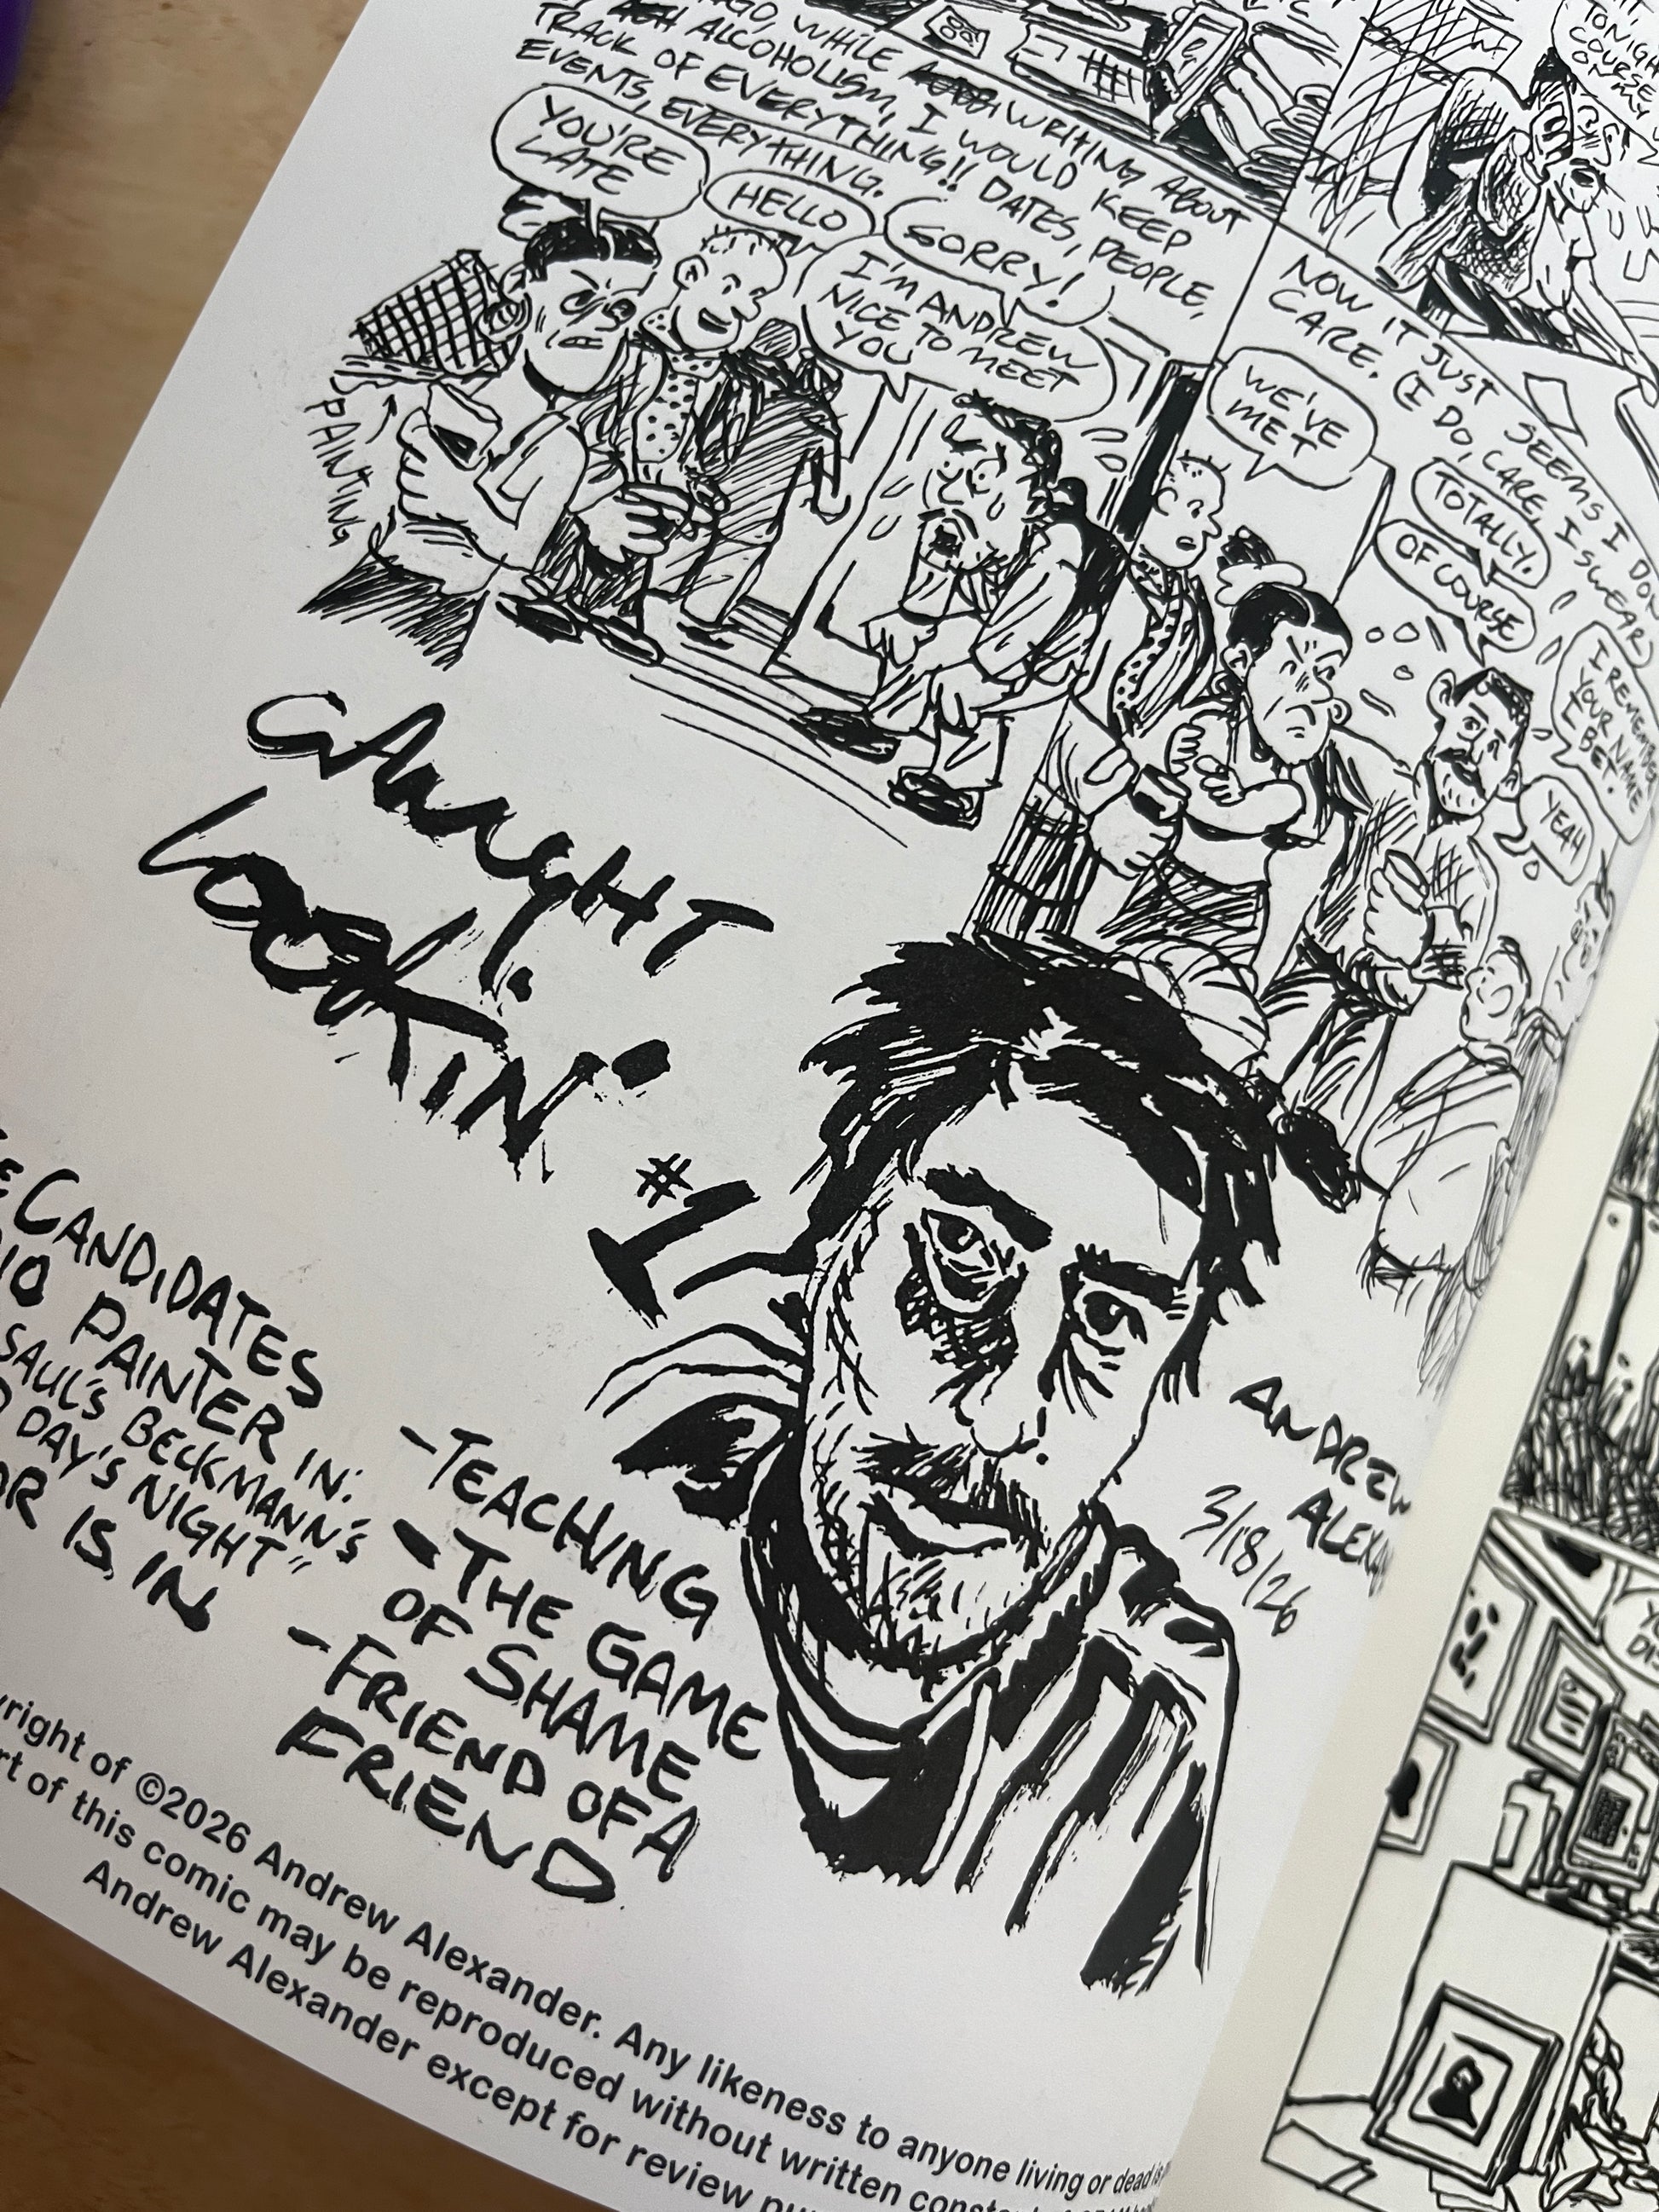 AGO, WHILE WRITING ABOUT
ALCOHOLISM, I WOULD KEEP
TRACK OF EVERYTHING!! DATES, PEOPLE,
EVENTS, EVERYTHING.
YOU'RE
LATE
HELLO
SORRY!
I'M ANDREW
NICE TO MEET
YOU
PAINTING
TONIGHT
COURSE
NOW IT JUST SEEMS I DON
CARE. (I DO, CARE, I SWEAR)
WE'VE
MET
TOTALLY.
OF COURSE
I REMEMBER
YOUR NAME
I BET.
YEAH
CAUGHT
LOOKIN'
#1
CANDIDATES
PAINTER IN:
SAUL'S BECKMANN'S
DAY'S NIGHT"
OR IS IN
-TEACHING
-THE GAME
OF SHAME
-FRIEND OF A
FRIEND
ANDREW
ALEXA
3/18/26
yright of ©2026 Andrew Alexander. Any likeness to anyone living or dead is
rt of this comic may be reproduced without written
Andrew Alexander except for review